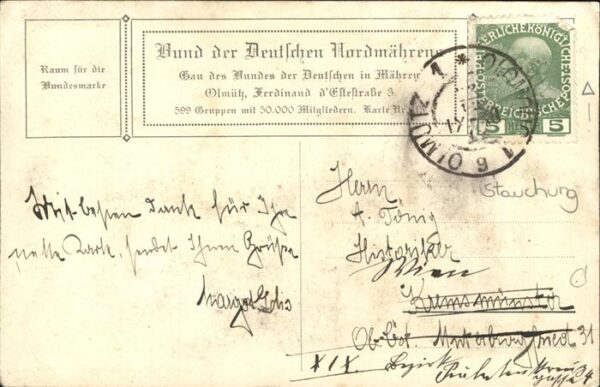 Raum für die
Bundesmarke
Bund der Deutschen Nordmährens
Gau des Bundes der Deutschen in Mähren
Olmütz, Ferdinand d'Estestraße 3
599 Gruppen mit 50.000 Mitgliedern. Karte Nr.
5 5
OLMÜTZ 1
Stauchung
Mit besten Dank für Ihre
nette Karte, sendet Ihnen Grüße
Margot
Herrn
A. König
Historiker
Wien
Kremsmünster
Ob. Öst. 31
XIX. Bezirk